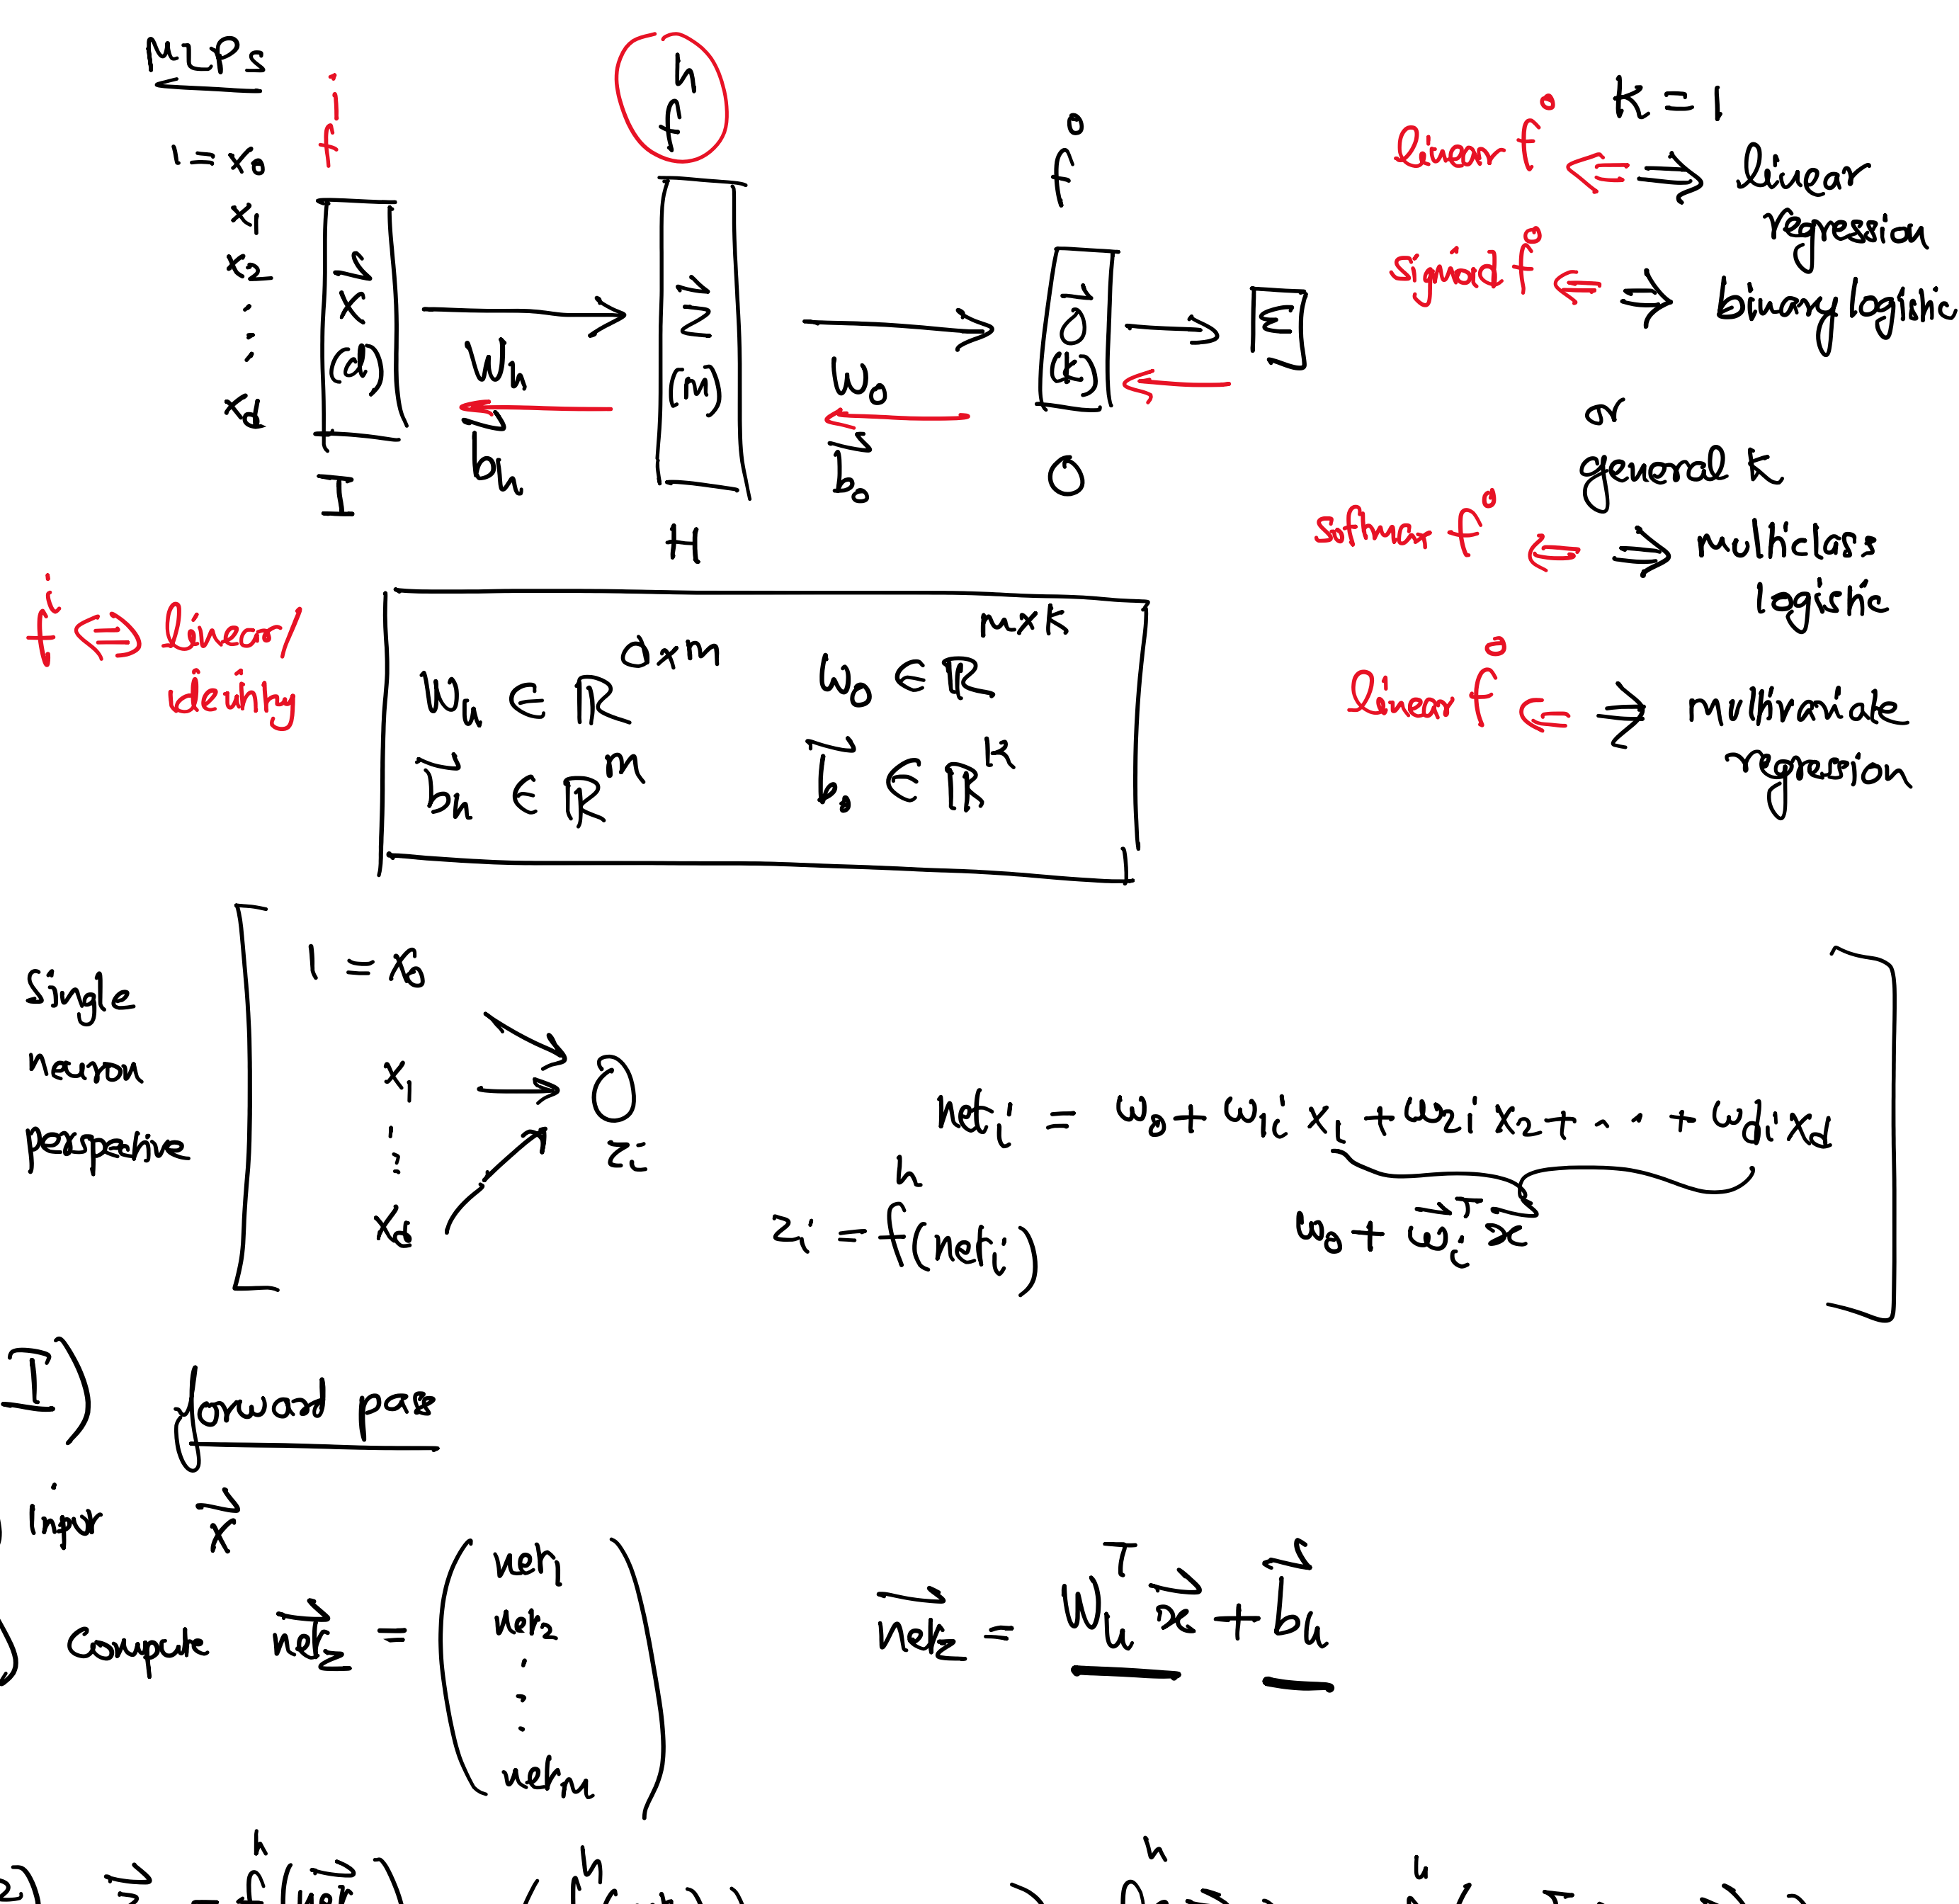 MLPs
1 = x₀
x₁
x₂
⋮
x_d
fⁱ
x⃗ (d)
I
W_h
b⃗_h
f^h
z⃗ (m)
H
W_o
b⃗_o
f^o
o⃗ (k)
O
E
K = 1
linear f^o ⇐ ⇒ linear
regression
sigmoid f^o ⇐ ⇒ binary logistic
or
general K
softmax f^o ⇐ ⇒ multiclass
logistic
linear f^o ⇐ ⇒ multivariate
regression
fⁱ ⇔ linear/
identity
W_h ∈ ℝ^{d×m} W_o ∈ ℝ^{m×k}
b⃗_h ∈ ℝ^m b⃗_o ∈ ℝ^k
single
neuron
perspective
1 = x₀
x₁
⋮
x_d
z_i
net_i = w₀ + w_{1i} x₁ + w_{2i} x₂ + ... + w_{di} x_d
z_i = f^h(net_i)
w₀ + w⃗_i^T x⃗
I) forward pass
input x⃗
) Compute net⃗_z = ( net₁
net₂
⋮
net_m )
net⃗_z = W_h^T x⃗ + b⃗_h